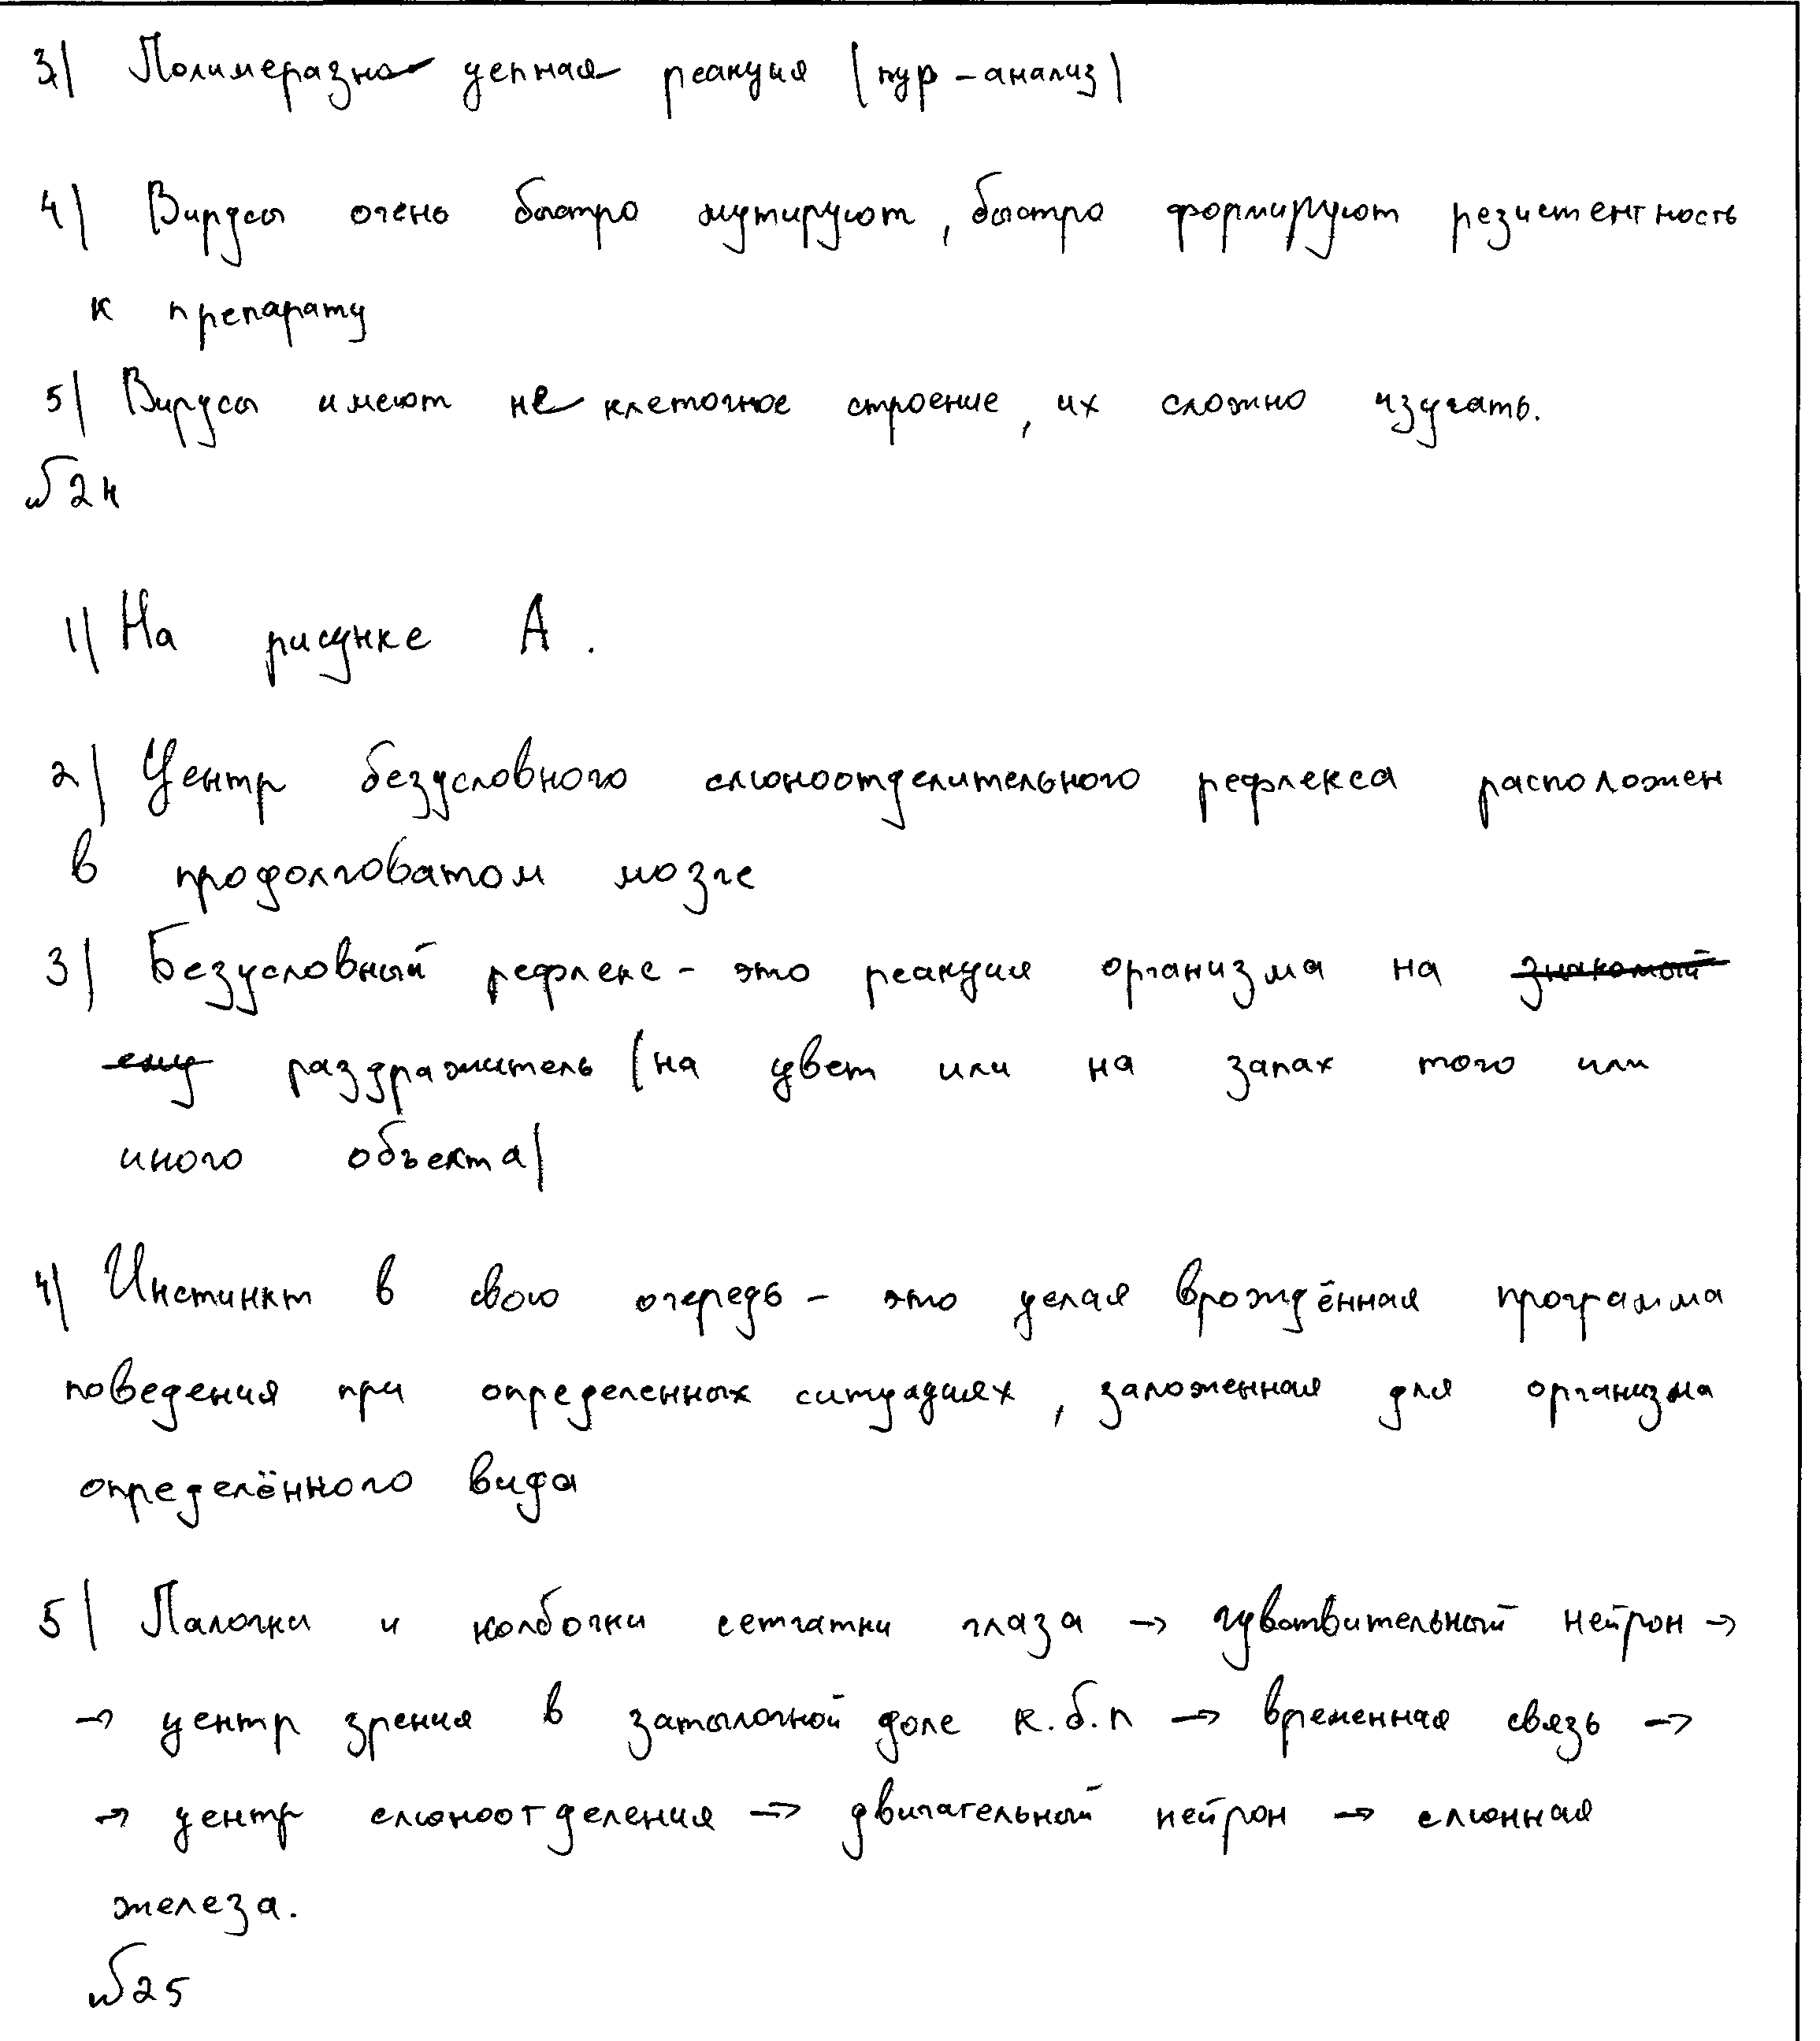 3) Полимеразно цепная реакция (пцр-анализ)
4) Вирусы очень быстро мутируют, быстро формируют резистентность
к препарату
5) Вирусы имеют не клеточное строение, их сложно изучать.
№24
1) На рисунке А.
2) Центр безусловного слюноотделительного рефлекса расположен
в продолговатом мозге
3) Безусловный рефлекс - это реакция организма на знакомый
ему раздражитель (на цвет или на запах того или
иного объекта)
4) Инстинкт в свою очередь - это целая врождённая программа
поведения при определенных ситуациях, заложенная для организма
определённого вида
5) Палочки и колбочки сетчатки глаза → чувствительный нейрон →
→ центр зрения в затылочной доле к.б.п → временная связь →
→ центр слюноотделения → двигательный нейрон → слюнная
железа.
№25